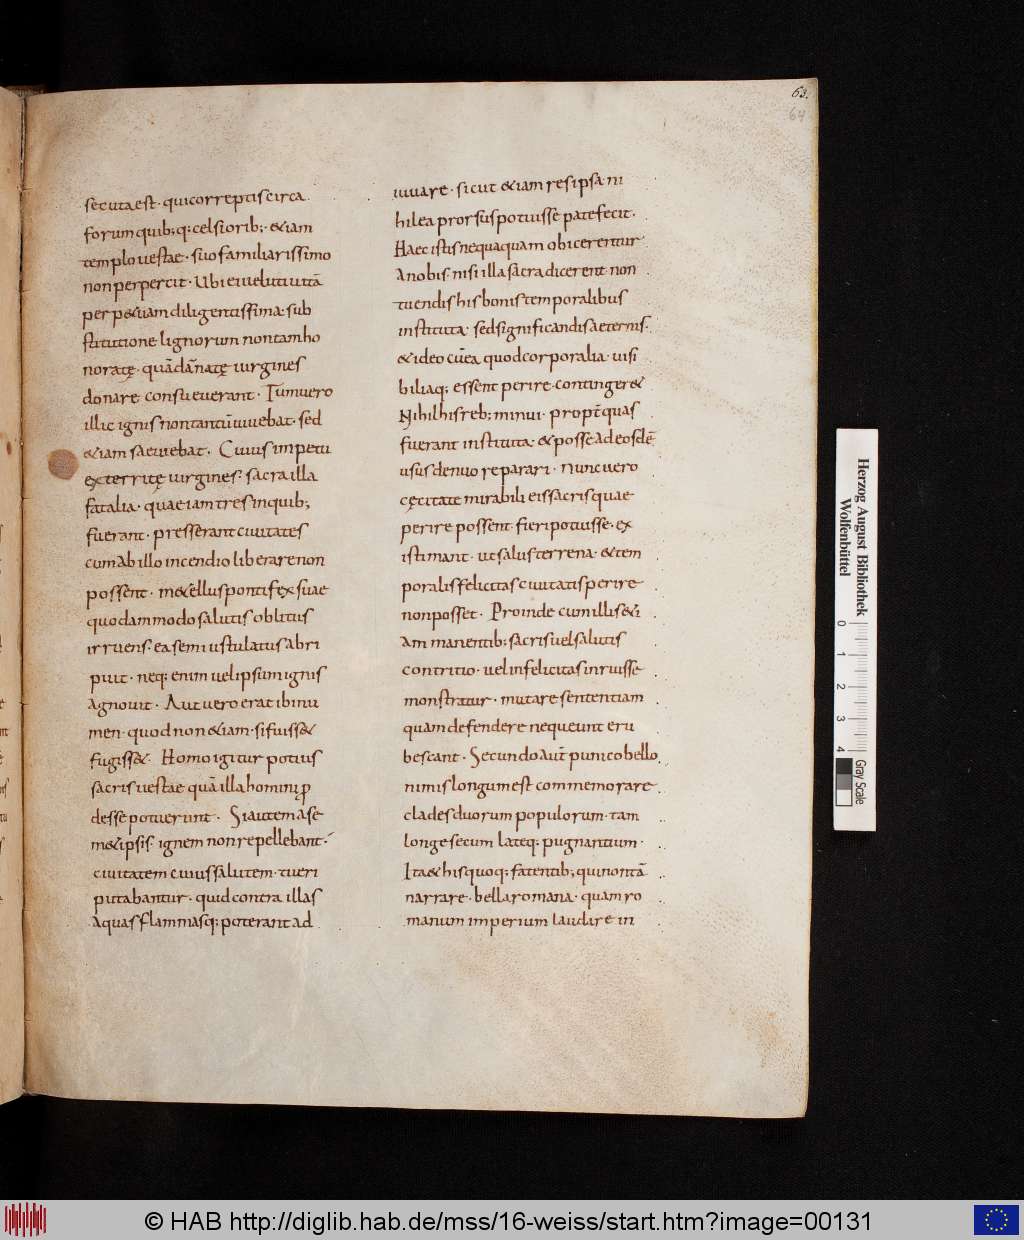 63.
64
secuta est· qui correptis circa
forum quib;q; celsiorib;· &iam
templo uestae· suo familiarissimo
non pepercit· Ubi ei uelut uitā
perp&uam diligentissima sub
stitutione lignorum non tam ho
noratę· quā dānatę uirgines
donare consueuerant· Tum uero
illic ignis non tantū uiuebat· sed
&iam saeuiebat· Cuius impetu
exterritę uirgines· sacra illa
fatalia· quae iam tres in quib;
fuerant· presserant ciuitates
cum ab illo incendio liberare non
possent· m&ellus pontifex suae
quodammodo salutis oblitus
irruens· ea semiustulatus abri
puit· neq; enim uel ipsum ignis
agnouit· Aut uero erat ibi nu
men· quod non &iam· si fuiss&
fugiss&· Homo igitur potius
sacris uestae quā illa homini ꝓ
desse potuerunt· Si autem a se
m&ipsis· ignem non repellebant·
ciuitatem cuius salutem· tueri
putabantur· quid contra illas
aquas flammasq; poterant ad
iuuare· sicut &iam res ipsa ni
hil ea prorsus potuisse patefecit·
Haec istis nequaquam obicerentur
a nobis· nisi illa sacra dicerent non
tuendis his bonis temporalibus
instituta· sed significandis aeternis·
& ideo cū ea quod corporalia uisi
biliaq; essent perire conting&er&
Nihil his reb; minui· propt̄ quas
fuerant instituta· & posse ad eosdē
usus denuo reparari· nunc uero
cęcitate mirabili eis sacris quae
perire possent· fieri potuisse· ex
istimant· ut salus terrena· & tem
poralis felicitas ciuitatis perire
non posset· Proinde cum illis &i
am manentib; sacris uel salutis
contritio· uel infelicitas inruisse
monstratur· mutare sententiam
quam defendere nequeunt eru
bescant· Secundo aut̄ punico bello
nimis longum est commemorare
clades duorum populorum· tam
longe secum lateq; pugnantium·
Ita & his quoq; fatentib; qui non tā
narrare· bella romana· quam ro
manum imperium laudare in
Herzog August Bibliothek
Wolfenbüttel
0 1 2 3 4
Gray Scale
© HAB http://diglib.hab.de/mss/16-weiss/start.htm?image=00131